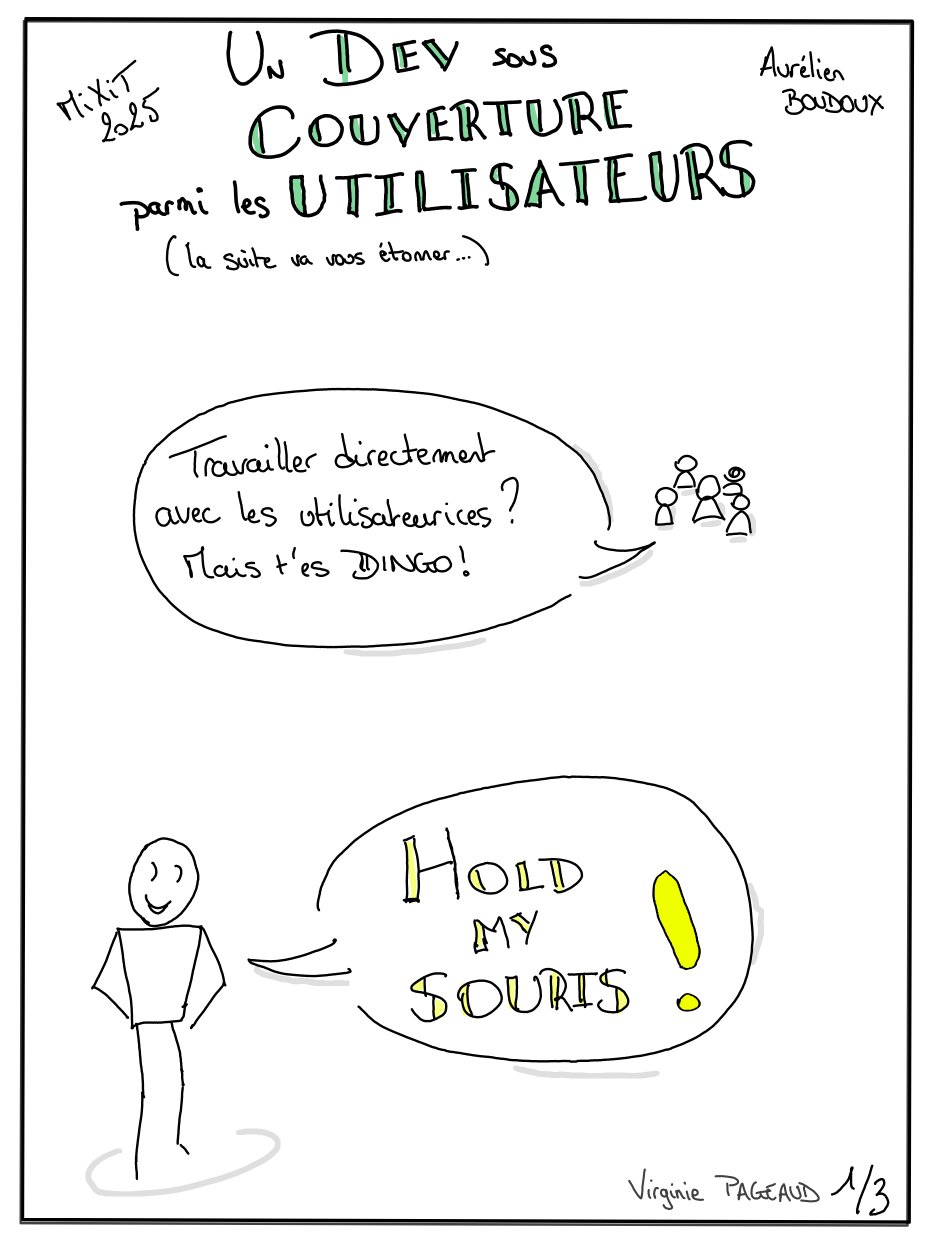 MiXiT
2025
UN DEV sous
COUVERTURE
parmi les UTILISATEURS
(la suite va vous étonner...)
Aurélien
BOUDOUX
Travailler directement
avec les utilisateurices ?
Mais t'es DINGO !
HOLD
MY
SOURIS !
Virginie PAGEAUD 1/3